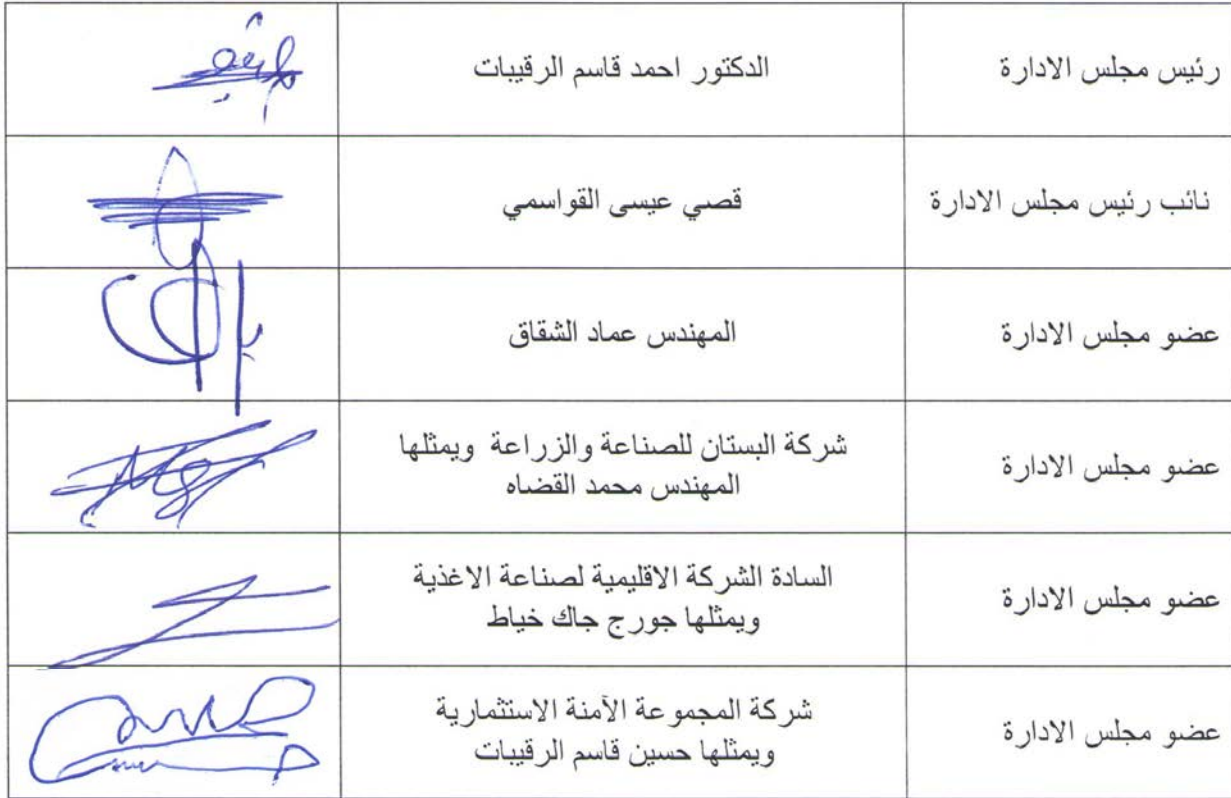 رئيس مجلس الادارة
الدكتور احمد قاسم الرقيبات
نائب رئيس مجلس الادارة
قصي عيسى القواسمي
عضو مجلس الادارة
المهندس عماد الشقاق
عضو مجلس الادارة
شركة البستان للصناعة والزراعة ويمثلها
المهندس محمد القضاه
عضو مجلس الادارة
السادة الشركة الاقليمية لصناعة الاغذية
ويمثلها جورج جاك خياط
عضو مجلس الادارة
شركة المجموعة الآمنة الاستثمارية
ويمثلها حسين قاسم الرقيبات